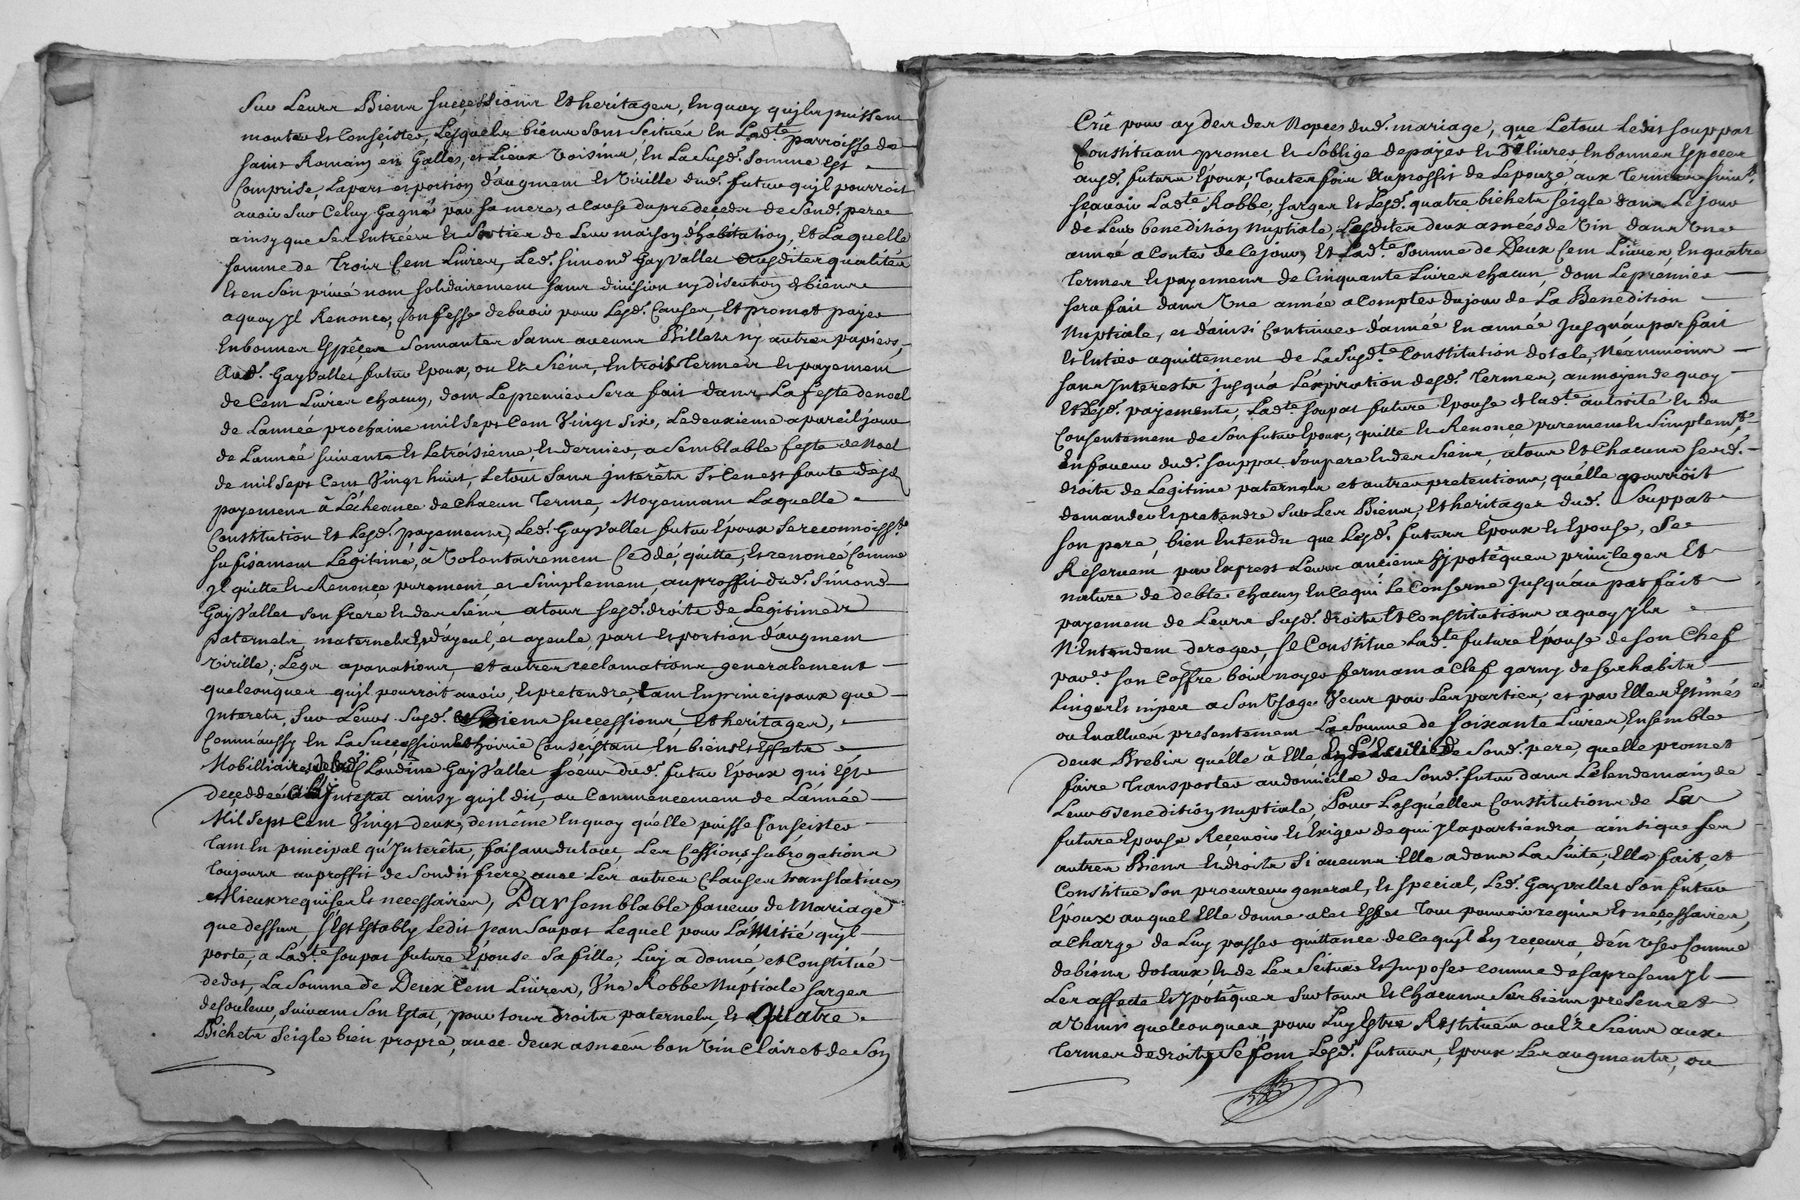 Sur Leurs Biens successions Et heritages, En quoy quils puissent
monter Et Conseister, Lesquels biens sont Scitués En Ladte parroisse de
saint Romain en Galles, et Lieux voisins, En La Susd. Somme Est
Comprise, La part et portion d'augment Et virille dud. futur quil pourroit
avoir Sur Celuy Gagné par sa mere, a cause du predecedes de Sond. pere
ainsy que Ses Entrées Et Sorties de Leur maison d'habitation, Et Laquelle
somme de Trois Cent Livres, Led. Simond Gayvallet Ausdites qualités
Et en Son privé nom solidairement sans division ny discution de biens
a quoy Jl Renonce, Confesse debvoir pour Lesd. Causes Et promet payer
En bonnes Espêces Sonnantes Sans aucuns Billets ny autres papiers,
Aud. Gayvallet futur Epoux, ou Et Siens, En trois Termes Et payement
de Cent Livres chacun, dont Le premier Sera fait dans La feste de noel
de L'année prochaine mil sept Cent Vingt Six, Le deuxieme a pareil jour
de L'année suivante Et Le troisieme, Et dernier, a Semblable feste de Noel
de mil Sept Cent Vingt huit, Le tout Sans Jnterêts Si Ce n'est faute desd.
payements à L'écheance de chacun Terme, Moyennant Laquelle
Constitution Et Lesd. payements, Led. Gayvallet futur Epoux Se reconnoisst.
suffisament Légitimé, à volontairement Ceddé, quitte, Et renoncé Comme
Jl quitte Et Renonce purement, et Simplement, au proffit dud. Simond
Gayvallet son frere Et des Siens a tous Sesd. droits de Legitimes
paternels, maternels, Et d'ayeul, et ayeule, part Et portion d'augment
virille, Legs apanations, et autres reclamations generalement
quelconques quil pourroit avoir, Et pretendre, tant En principaux que
Jnterets, Sur Leurs Susd. Biens successions, Et heritages,
Comm'aussy En La Succession Et hoirie Conseistant En biens Et Effets
Mobilliaires de Claudine Gayvallet soeur dud. futur Epoux qui Est
deçeddée ab Jntestat ainsy quil dit, au Commencement de L'année
Mil Sept Cent Vingt deux, de même En quoy qu'elle puisse Conseister
Tant En principal qu'Jnterêts, faisant du tout, Les Cessions subrogations
Toujours au proffit de Sondit frere avec Les autres Clauses translatives
Mieux requises Et necessaires, Par semblable faveur de Mariage
que dessus S'Est Estably Ledit Jean Soupat Lequel pour L'amitié quil
porte, a Ladte Soupat future Epouse Sa fille, Luy a donné, et Constitué
de dot, La Somme de Deux Cent Livres, Une Robbe Nuptiale sarges
de Couleur, suivant Son Estat, pour tous droits paternels, Et quatre
Bichets Seigle bien propre, avec deux asnées bon Vin Clairet de Son
Crû pour ayder des Nopces dud. mariage, que Le tout Ledit Souppat
Constituant promet Et S'oblige de payer Et delivrer En bonnes Espeçes
ausd. futurs Epoux, Toutes fois Au proffit de Lepouze aux Termes suivts.
Sçavoir Ladte Robbe, sarges Et Lesd. quatre bichets Seigle dans Le jour
de Leur benediction Nuptiale, Lesdites deux asnées de Vin dans Une
année a Conter de Ce jour, Et Ladte Somme de Deux Cent Livres En quatre
Termes Et payement de Cinquante Livres chacun, dont Le premier
sera fait dans Une année a Compter du jour de La Benediction
Nuptiale, et d'ainsi Continuer d'année En année Jusqu'au parfait
Et Entier aquittement de La Susdte Constitution dotale, Néanmoins
sans Jnterests Jusqu'à L'expiration desd. Termes, au moyen de quoy
Et Lesd. payements, Ladte Soupat future Epouse de Ladte autorité Et du
Consentement de Son futur Epoux, quitte Et Renonce purement Et Simplemt.
En faveur dud. Souppat Son pere Et des Siens, a tous Et Chacuns Sesd.
droits de Legitime paternels et autres pretentions, qu'elle pourroit
demander Et pretendre Sur Les Biens, Et heritages dud. Souppat
Son pere, bien Entendu que Lesd. futurs Epoux Et Epouse, Se
Reservent par Exprest Leurs anciens hypotêques privileges Et
nature de debte chacun En Ce qui Le Conserne Jusqu'au parfait
payement de Leurs Susd. droits Et Constitutions a quoy Jls
N'Entendent deroger, Se Constitue Ladte future Epouse de Son Chef
Son Coffre bois noyer fermant a Clef garny de Ses habits
Linges Et nipes a Son Usage Veux par Les parties, et par Elles Estimés
ou Evallués presentement La Somme de soixante Livres, Ensemble
deux Brebis qu'elle à Elle En de Sond. pere, quelle promet
faire Transporter au domicile de Sond. futur dans Le Lendemain de
Leur Benediction Nuptiale, Pour Lesquelles Constitutions de La
future Epouse Reçevoir Et Exiger de qui Jl apartiendra ainsi que ses
autres Biens Et droits Si aucuns Elle a dans La Suite, Elle fait, et
Constitue Son procureur general, Et special, Led. Gayvallet Son futur
Epoux auquel Elle donne a Cet Effet Tous pouvoirs requis Et neçessaires,
a Charge de Luy passer quittance de Ce quil En reçevra, d'en user Comme
de biens dotaux Et de Les Scituer Et Jmposer comme des a present Jl
Les affecte Et Jpotêquer Sur tous Et Chacuns Ses biens presents Et
a Venir quelconques, pour Luy Estre Restitués ou Ez Siens aux
Termes de droits, Se font Lesd. futurs, Epoux Les augments, ou